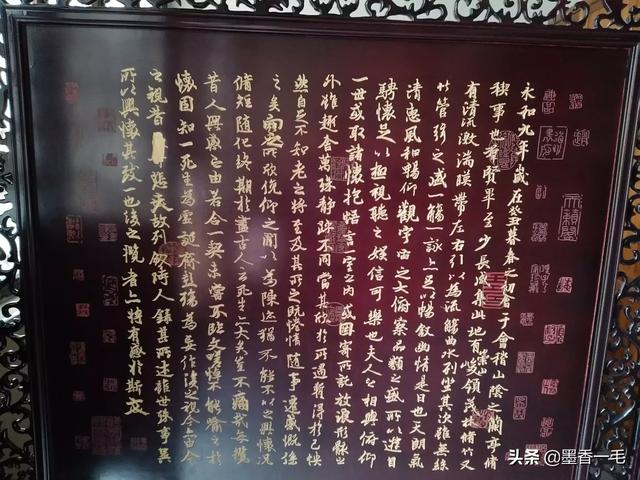 永和九年歲在癸丑暮春之初會于會稽山陰之蘭亭脩
禊事也羣賢畢至少長咸集此地有崇山峻領茂林脩竹又
有清流激湍暎帶左右引以為流觴曲水列坐其次雖無絲
竹管弦之盛一觴一詠亦足以暢敘幽情是日也天朗氣
清惠風和暢仰觀宇宙之大俯察品類之盛所以遊目
騁懷足以極視聽之娛信可樂也夫人之相與俯仰
一世或取諸懷抱悟言一室之內或因寄所託放浪形骸之
外雖趣舍萬殊靜躁不同當其欣於所遇暫得於己怏
然自足不知老之將至及其所之既惓情隨事遷感慨係
之矣向之所欣俛仰之間以為陳迹猶不能不以之興懷況
脩短隨化終期於盡古人云死生亦大矣豈不痛哉每攬
昔人興感之由若合一契未嘗不臨文嗟悼不能喻之於
懷固知一死生為虛誕齊彭殤為妄作後之視今亦由今
之視昔悲夫故列敘時人錄其所述雖世殊事異
所以興懷其致一也後之攬者亦將有感於斯文
头条 @墨香一毛